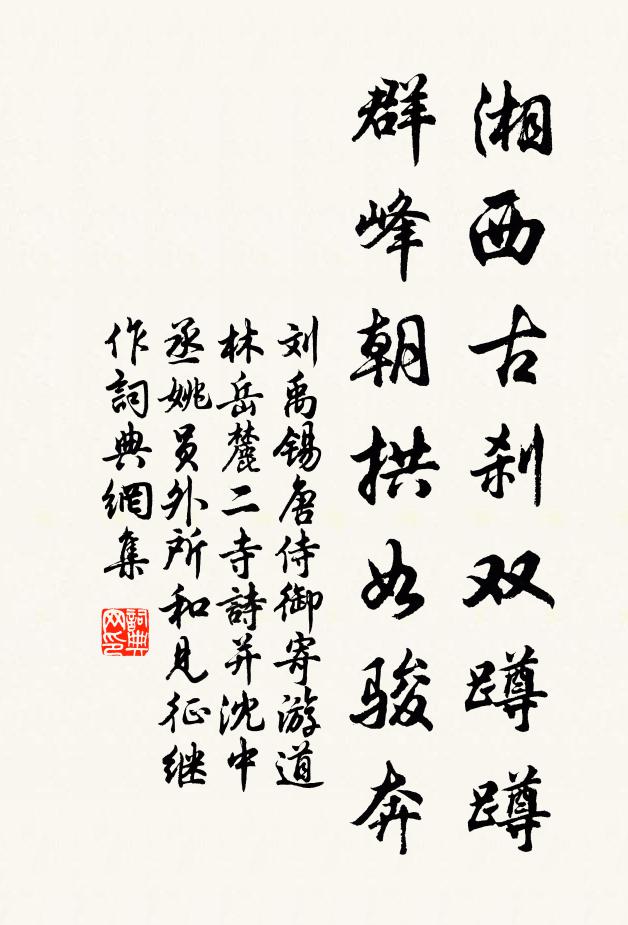 湘西古刹双蹲蹲
群峰朝拱如骏奔
刘禹锡唐侍御寄游道
林岳麓二寺詩并沈中
丞姚员外所和见征继
作詞典網集
詞典网印